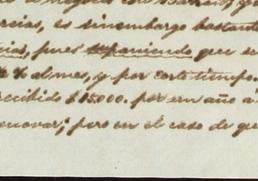 rcias, es sinembargo bastante
cias, pues suponiendo que se
% al mes, y por corto tiempo.
recibido $15.000. por un año á
enovar; pero en el caso de que